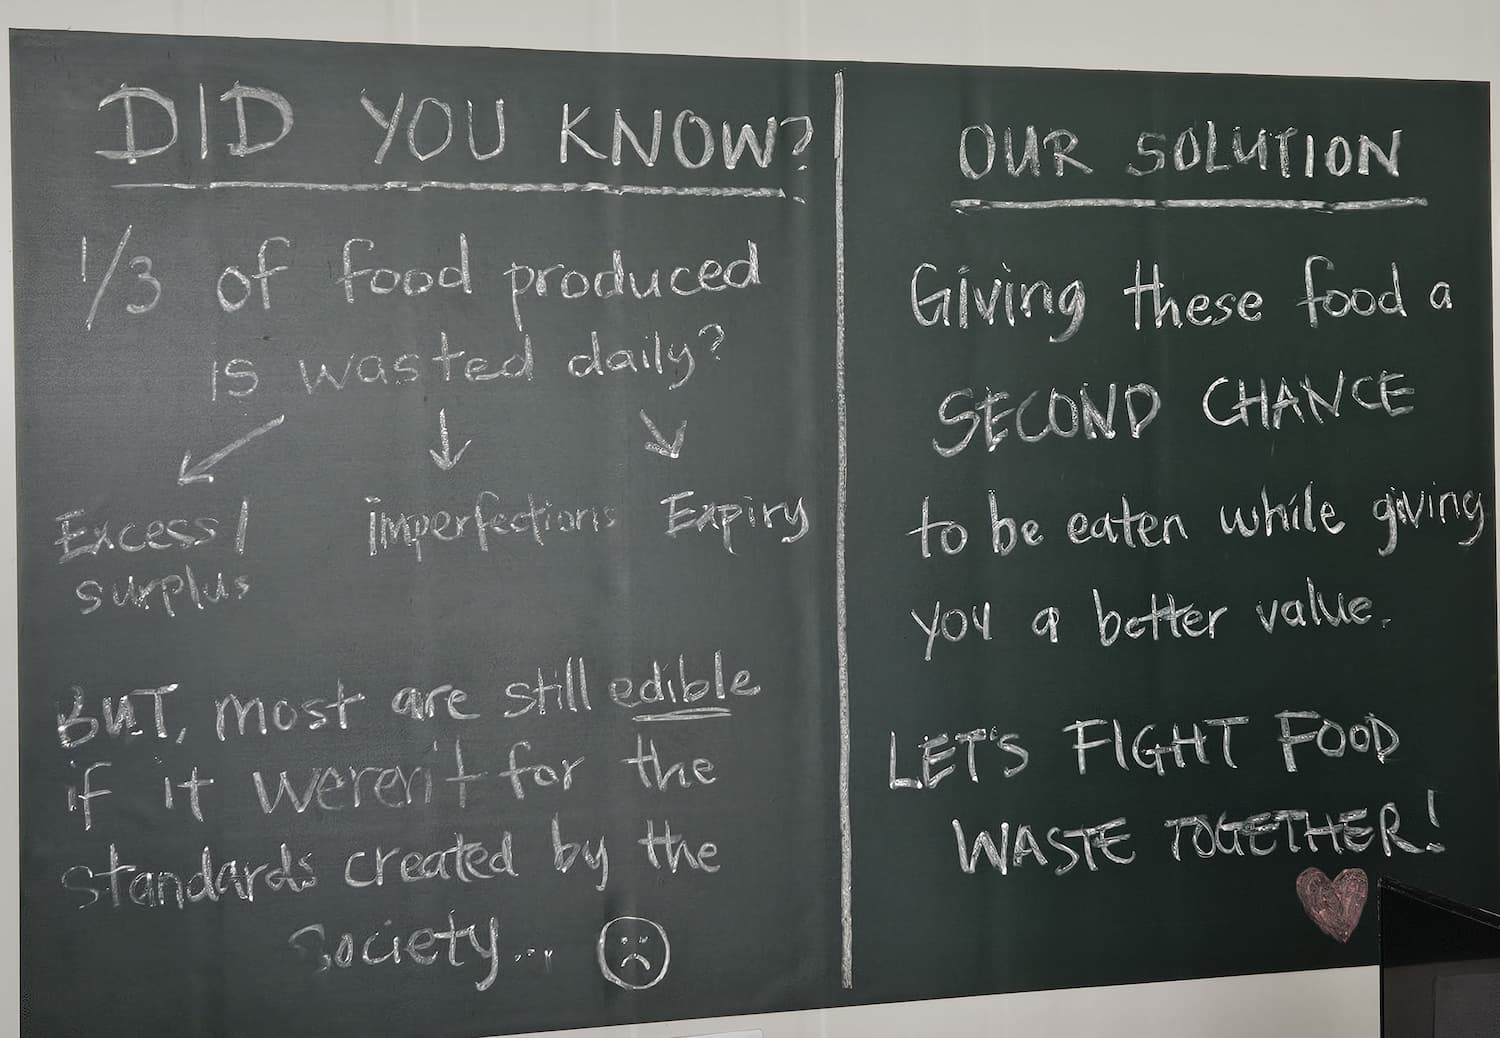 DID YOU KNOW?
1/3 of food produced
is wasted daily?
Excess/
surplus
imperfections
Expiry
BUT, most are still edible
if it weren't for the
standards created by the
society...
OUR SOLUTION
Giving these food a
SECOND CHANCE
to be eaten while giving
you a better value.
LET'S FIGHT FOOD
WASTE TOGETHER!